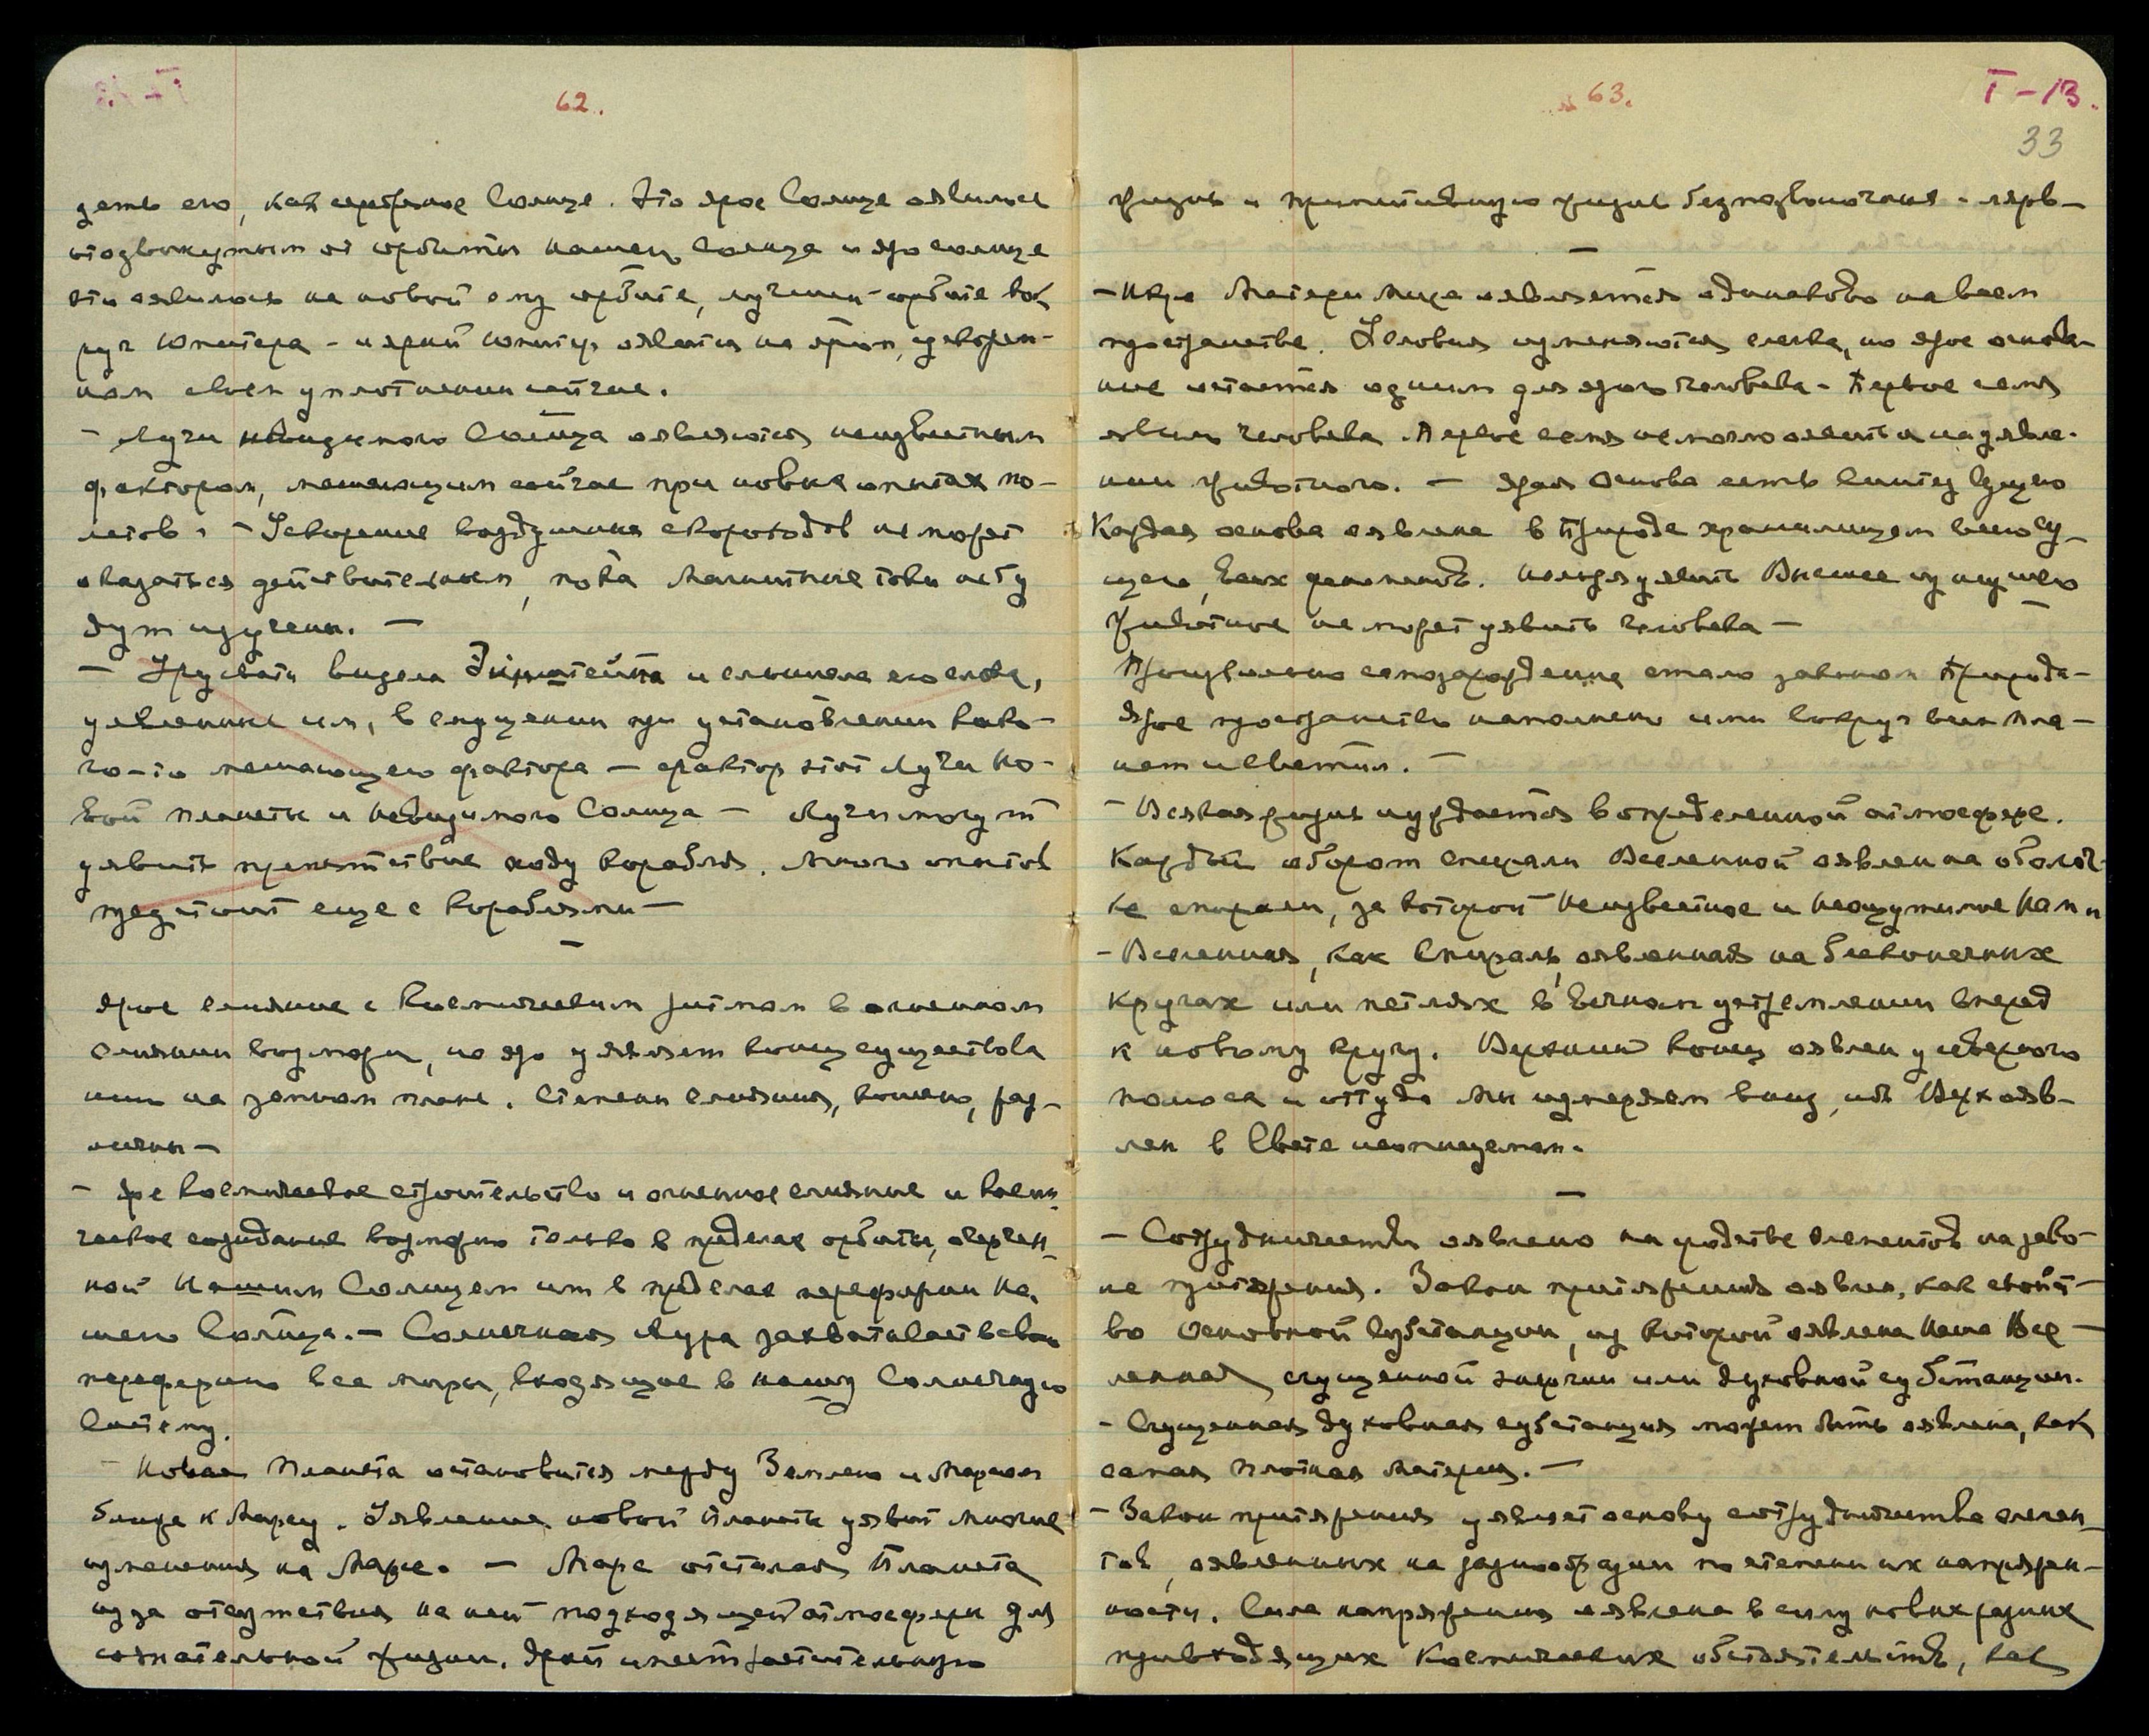 62.
деть его, как серебряное Солнце. Это ярое Солнце явилось
отодвинутым от орбиты нашего Солнца и яро солнце
это явилось на новой ему орбите, лучшей орбите вок
руг Юпитера - и ярый Юпитер явится на яром, ускорен-
ном своем уплотнении сейчас.
- Лучи невидимого Солнца являются неизвестным
фактором, мешающим сейчас при новых опытах по-
летов. - Ускорение воздушных скороходов не может
оказаться действительным, пока Магнитные токи не бу
дут изучены. -
- Урусвати видела Эйнштейна и слышала его слова,
уявленные им, в смущении при установлении како-
го-то мешающего фактора - фактор этот Лучи Но-
вой планеты и Невидимого Солнца - Лучи могут
уявить препятствие ходу корабля. Много опытов
предстоит еще с кораблями -
Ярое слияние с Космическим ритмом в огненном
слиянии возможно, но яро уявляет конец существова
ния на земном плане. Степени слияния, конечно, раз-
личны -
- Яре Космическое строительство и огненное слияние и Косми-
ческое созидание возможно только в пределах орбиты, очерчен-
ной Нашим Солнцем или в пределах периферии На-
шего Солнца. - Солнечная Аура захватывает в свою
периферию все миры, входящие в нашу Солнечную
Систему.
- Новая Планета остановится между Землею и Марсом
ближе к Марсу. Уявление новой Планеты уявит многие
изменения на Марсе. - Марс отсталая Планета
из за отсутствия на ней подходящей атмосферы для
сознательной жизни. Ярый имеет растительную
63.
I - 13.
33
жизнь и примитивную жизнь безпозвоночных - червь -
- Искра Матери Мира является одинаково на всем
пространстве. Условия изменяются слегка, но ярое основа-
ние остается одним для ярого человека - Первое семя
явило человека. Первое семя не могло явиться на уявле-
нии животного. - Ярая Основа есть Синтез Сущего
Каждая основа явлена в Природе хранилищем всего су-
щего, Всех феноменов. Нельзя уявить Высшее из низшего
Животное не может уявить человека -
Произвольно самозарождение стало законом Природы -
Ярое пространство наполнено ими вокруг всех Пла-
нет и светил. -
- Всякая жизнь нуждается в определенной атмосфере.
Каждый оборот спирали Вселенной явлен на оболоч-
ке спирали, за которой Неизвестное и Неощутимое Нами
- Вселенная, как Спираль, явленная на бесконечных
кругах или петлях в Вечном устремлении вперед
к новому кругу. Верхний конец явлен у северного
полюса и оттуда мы измеряем вниз, ибо Верх яв-
лен в Свете неописуемом.
- Сотрудничество явлено на родстве Элементов на зако-
не притяжения. Закон притяжения явлен, как свойст-
во Основной Субстанции, из которой явлена Наша Все-
ленная, сгущенной энергии или духовной субстанции.
- Сгущенная духовная субстанция может быть явлена, как
самая Плотная Материя. -
- Закон притяжения уявляет основу сотрудничества элемен-
тов, явленных на разнообразии по степени их напряжен-
ности. Сила напряжения явлена в силу новых разных
привходящих Космических обстоятельств, как